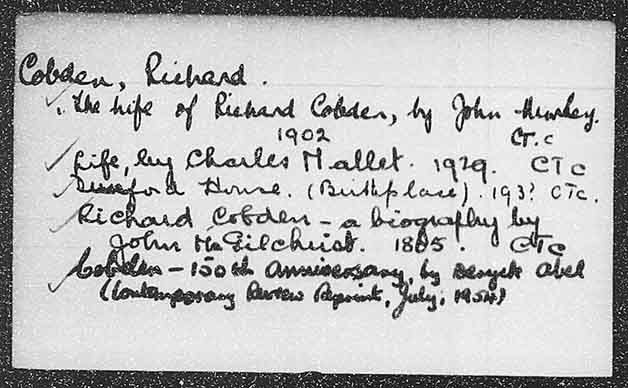 Cobden, Richard.
The Life of Richard Cobden, by John Morley.
1902 CT.C
Life, by Charles Mallet. 1929. CTC
Dunford House. (Birthplace). 193? CTC.
Richard Cobden - a biography by
John McGilchrist. 1865. CTC
Cobden - 150th Anniversary, by Deryck Abel
(Contemporary Review Reprint, July, 1954)